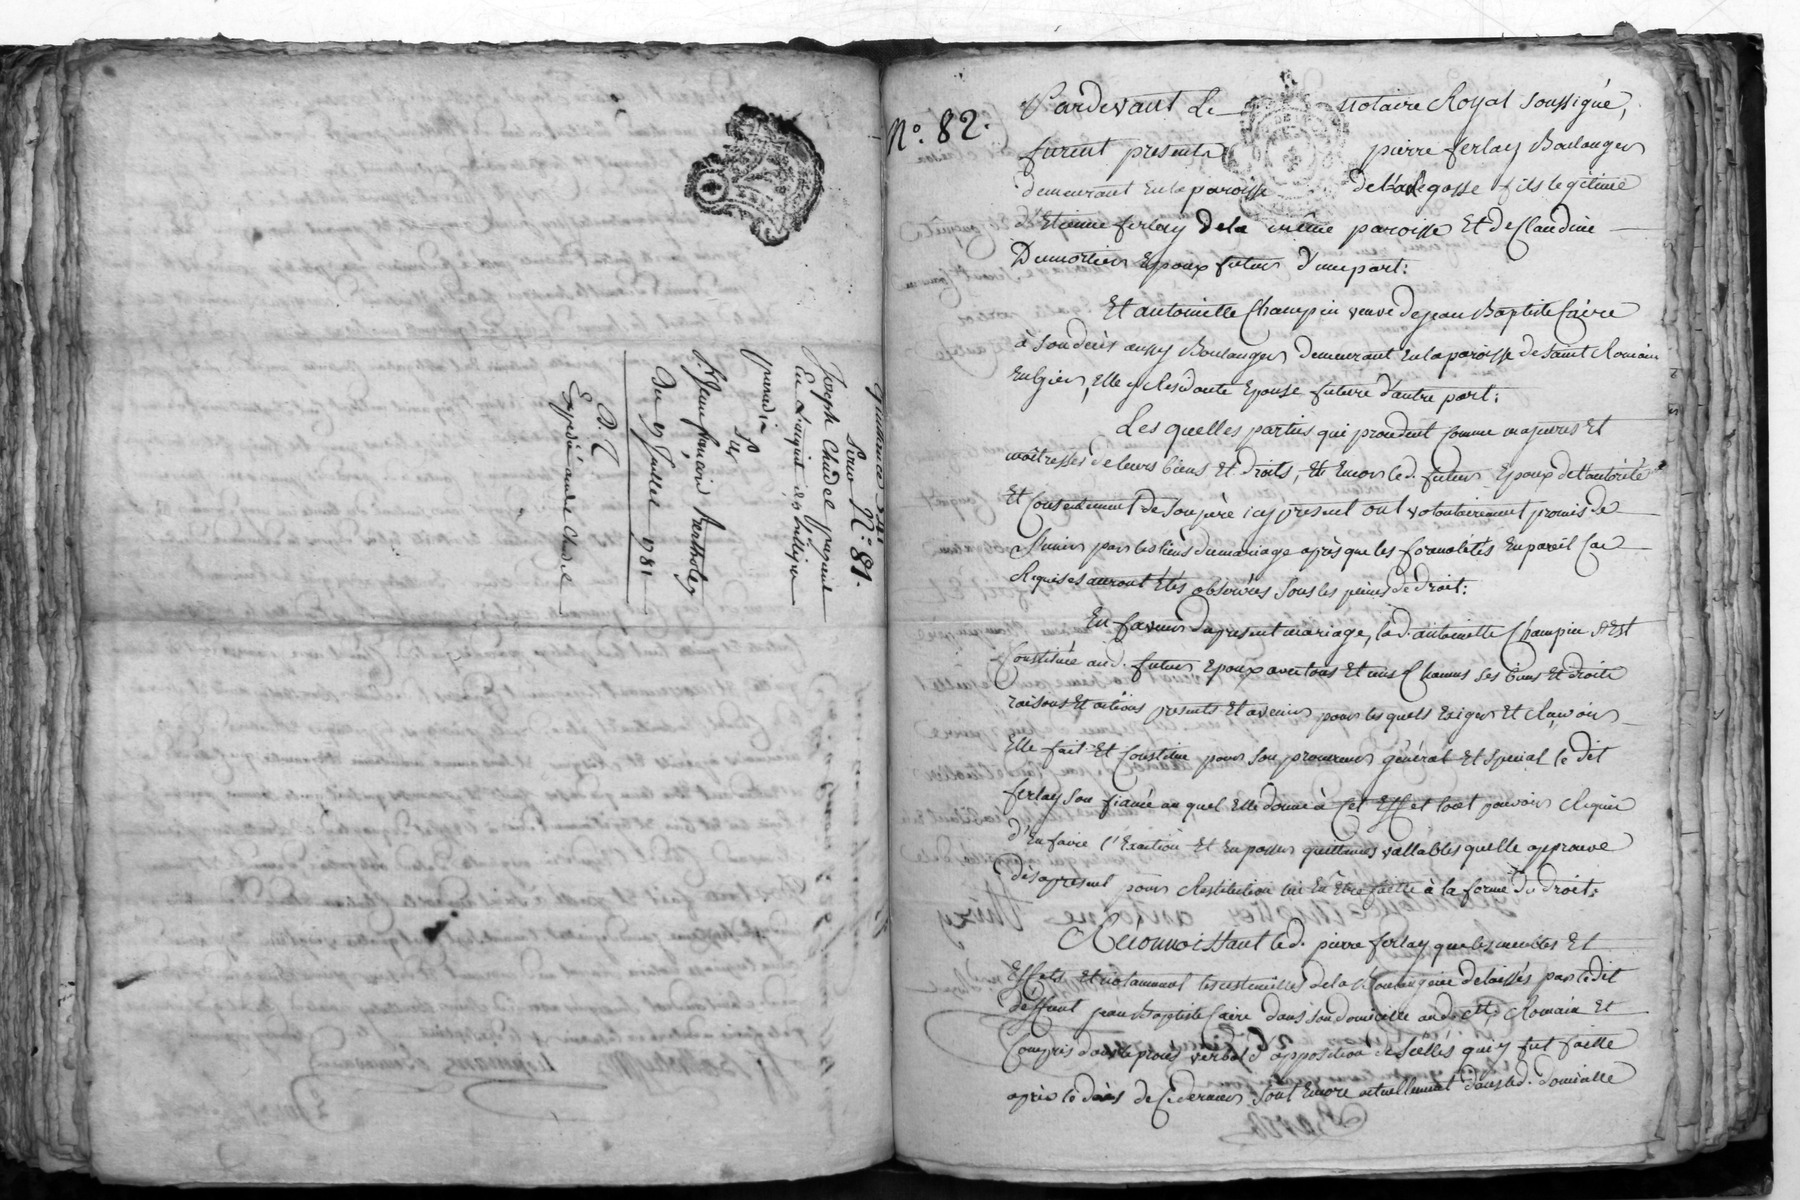 Quittance
Sous N.° 81.
Joseph Chudel
Sur
S.r Jean françois Bertholey
Du 17 Juillet 1781
E. D. C
Expedié
N.° 82.
Pardevant Le notaire Royal soussigné,
furent presents pierre ferlay Boulanger
demeurant en la paroisse de fils legitime
d'Etienne ferlay de la même paroisse Et de Claudine
Dumortier Epoux futur d'une part:
Et antoinette Champin veuve de jean Baptiste Caire
à son decès aussy Boulanger demeurant En la paroisse de saint Romain
En Giers, Elle y Residante Epouse future d'autre part:
Les quelles parties qui procedent comme majeures Et
maîtresses de leurs biens Et droits, Et Encor led. futur Epoux de l'autorité
Et consentement de son père icy present ont volontairement promis de
s'unir par les liens du mariage après que les formalités En pareil Cas
Requises auront Etés observées sous les peines de droit:
En faveur du present mariage, lad. antoinette Champin s'Est
Constituée aud. futur Epoux avec tous Et uns Chacuns ses biens Et droits
raisons Et actions presents Et avenir pour les quels Exiger Et Recevoir
Elle fait Et Constitue pour son procureur général Et special le dit
ferlay son fiancé au quel Elle donne à Cet Effet tout pouvoir Requis
d'En faire l'Exaction Et En passer quittances vallables quelle approuve
dès apresent pour Restitution lui En être faitte à la forme du droit:
Reconnoissant led. pierre ferlay que les meubles Et
Effets Et notamment les ustencilles de la Boulangerie delaissés par le dit
deffunt jean Baptiste Caire dans son domicille aud. St. Romain Et
Compris dans le procès verbal d'apposition de scéllés qui y fut faitte
après le decès de Ce dernier sont Encore actuellement dans led. domicille